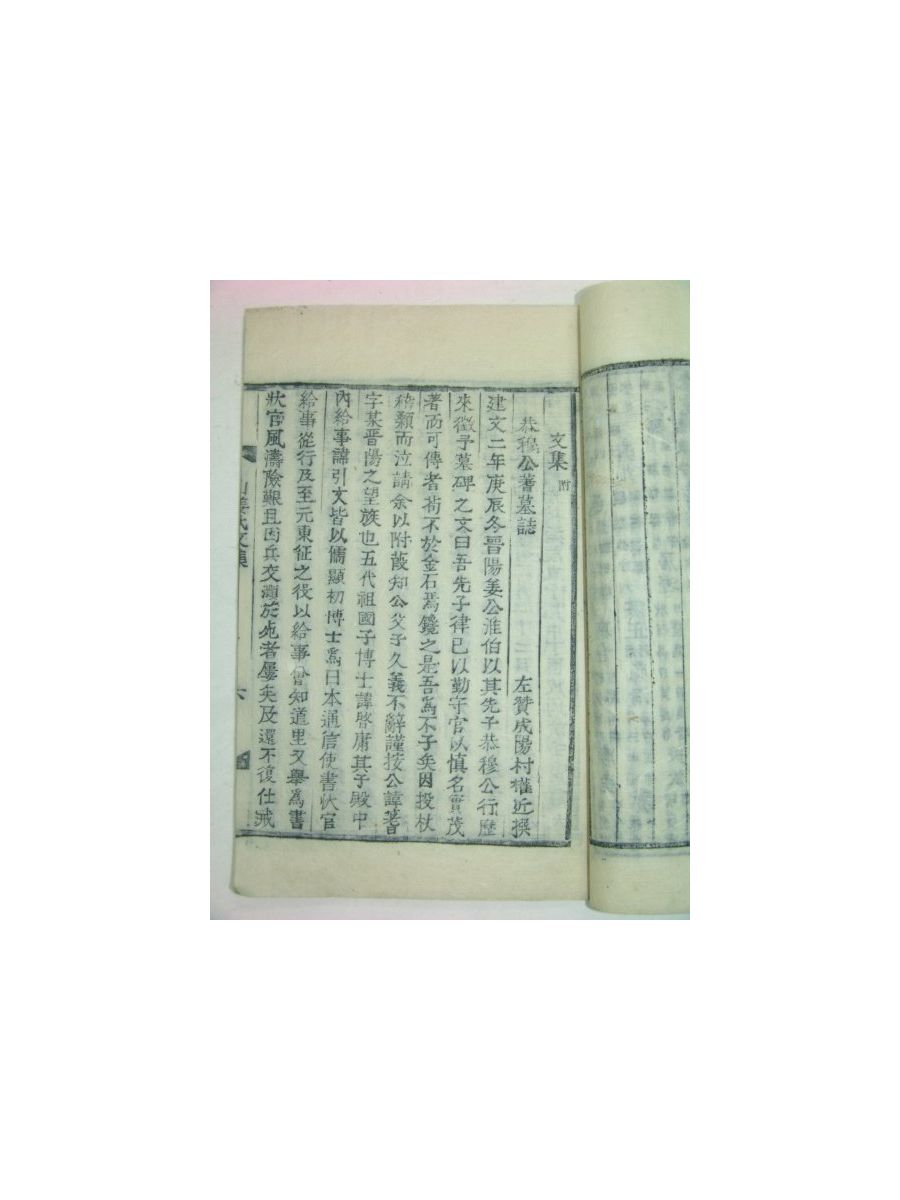 文集 附
恭穆公蓍墓誌 左贊成陽村權近撰
建文二年庚辰冬晉陽姜公淮伯以其先子恭穆公行歷
來徵予墓碑之文曰吾先子律己以勤守官以慎名實茂
著而可傳者苟不於金石焉鑱之是吾爲不子矣因投杖
稽顙而泣請余以附葭知公父子久義不辭謹按公諱蓍
字某晉陽之望族也五代祖國子博士諱啓庸其子殿中
內給事諱引文皆以儒顯初博士爲日本通信使書狀官
給事從行及至元東征之役以給事曾知道里又擧爲書
狀官風濤險艱且因兵交濱於死者屢矣及還不復仕戒
山姜氏文集 六